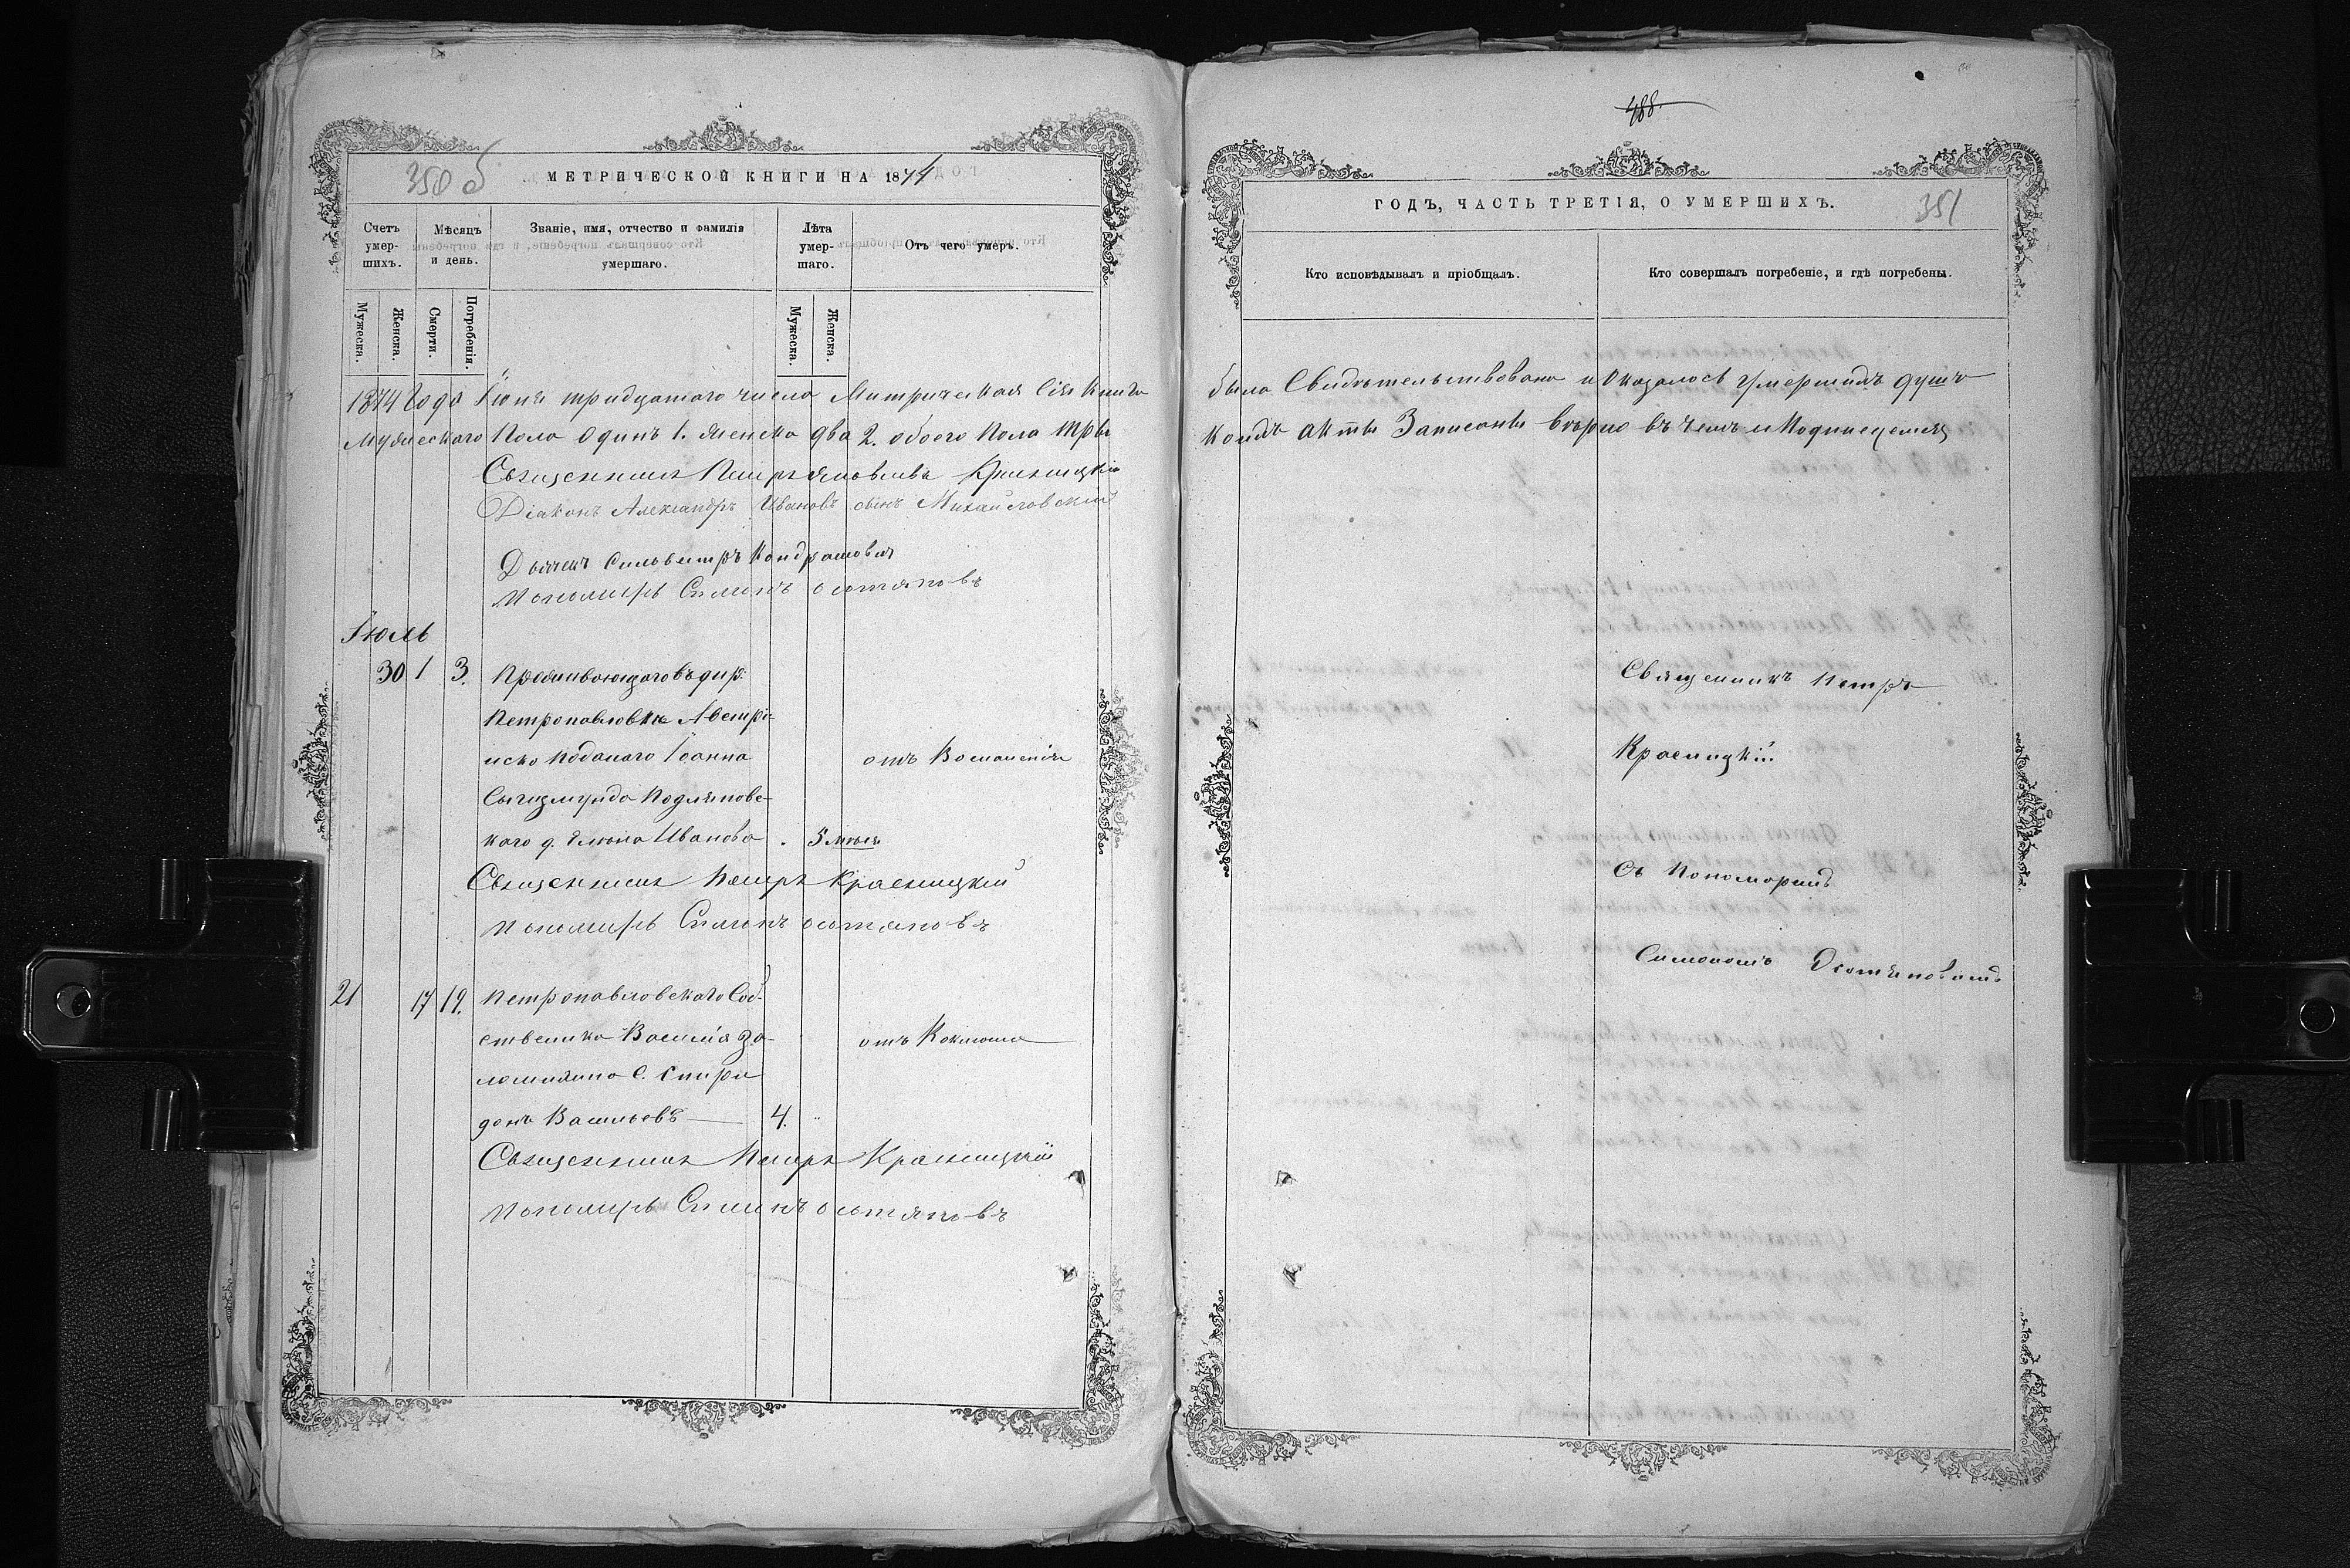 350 б
МЕТРИЧЕСКОЙ КНИГИ НА 1874
Счетъ умер-шихъ.
Мѣсяцъ и день.
Званіе, имя, отчество и фамилія умершаго.
Лѣта умер-шаго.
Отъ чего умеръ.
Мужеска.
Женска.
Смерти.
Погребенія.
Мужеска.
Женска.
1874 Года Іюня тридцатого числа Митрическая Сія Книга
Мужескаго Пола Одинъ 1. женска два 2. обоего Пола три
Священникъ Петръ Красницкій
Діаконъ Александръ Ивановъ сынъ Михайловскій
Дьячекъ Сильвестръ Кондрашовъ
Пономарь Симонъ Остяновъ
Іюль
30 1 3. Проживающаго въ дер.
Петропавловкѣ Австрі-
иско поданаго Іоанна
отъ Воспаленія
Сигизмунда
каго д. Елена Иванова . 5 мѣся
Священникъ Петръ Красницкій
Пономарь Симонъ Остяновъ
21 17 19. Петропавловскаго Соб-
ственика Василія За-
отъ Коклюша
с. Спири
донъ Васильевъ 4. "
Священникъ Петръ Красницкій
Пономарь Симонъ Остяновъ
488.
ГОДЪ, ЧАСТЬ ТРЕТІЯ, О УМЕРШИХЪ.
351
Кто исповѣдывалъ и пріобщалъ.
Кто совершалъ погребеніе, и гдѣ погребены.
была Свидѣтельствована и Оказалось Умершихъ душъ
коихъ акты Записаны вѣрно въ чемъ и Подписуемся
Священникъ Петръ
Красницкій
Съ Пономаремъ
Симономъ Остяновымъ